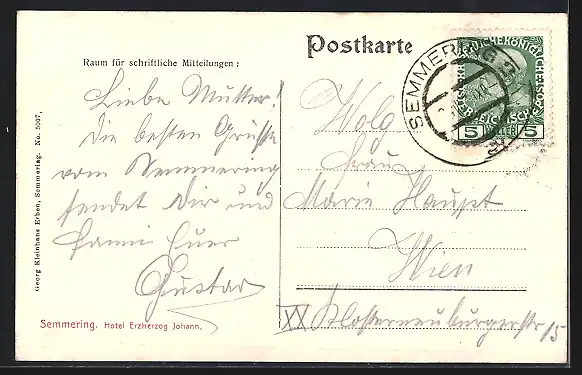 Postkarte
Raum für schriftliche Mitteilungen:
Liebe Mutter!
Die besten Grüsse
vom Semmering
sendet Dir und
Fanni Euer
Gustav
Wolg
Frau
Marie Haupt
Wien
XX Klosterneuburgerstr 15
Semmering. Hotel Erzherzog Johann.
Georg Kleinhans Erben, Semmering. No. 5007.
SEMMERING
5 HELLER 5